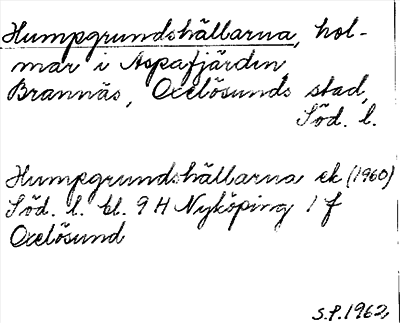 Humpgrundshällarna, hol-
mar i Aspafjärden,
Brannäs, Oxelösunds stad,
Söd. l.
Humpgrundshällarna ek (1960)
Söd. l. bl. 9 H Nyköping 1 f
Oxelösund
S.P. 1962